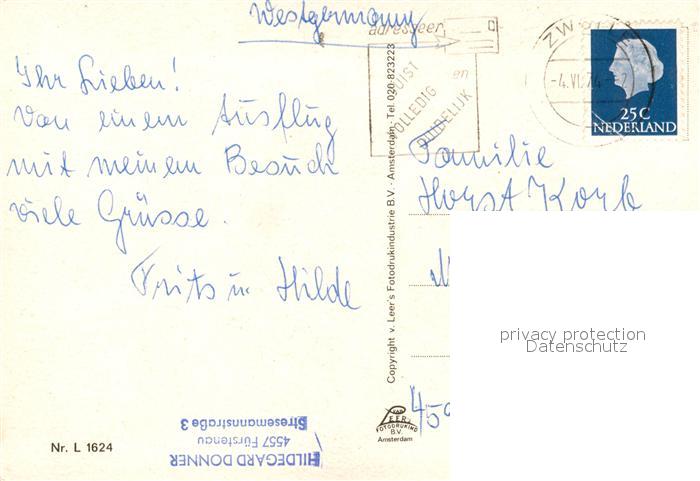 Westgermany
adresseer
JUIST
VOLLEDIG
en
DUIDELIJK
ZWOLLE
-4.VI.74
25C
NEDERLAND
Ihr Lieben!
Von einem Ausflug
mit meinem Besuch
viele Grüsse.
Frits u. Hilde
Copyright v. Leer's Fotodrukindustrie B.V. - Amsterdam. Tel. 020-823223
Familie
Horst Korb
privacy protection
Datenschutz
45
VAN
LEER
FOTODRUKIND
B.V.
Amsterdam
Nr. L 1624
HILDEGARD DONNER
4557 Fürstenau
Stresemannstraße 3